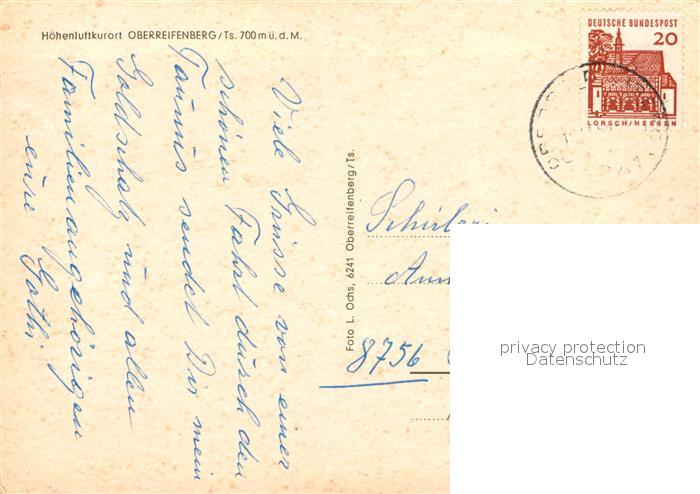 Höhenluftkurort OBERREIFENBERG/Ts. 700 m ü. d. M.
DEUTSCHE BUNDESPOST
20
LORSCH/HESSEN
Viele Grüsse von einer
schönen Fahrt durch den
Taunus sendet Dir mein
Goldschatz und allen
Familienangehörigen
eure
Foto L. Ochs, 6241 Oberreifenberg/Ts.
8756
privacy protection
Datenschutz